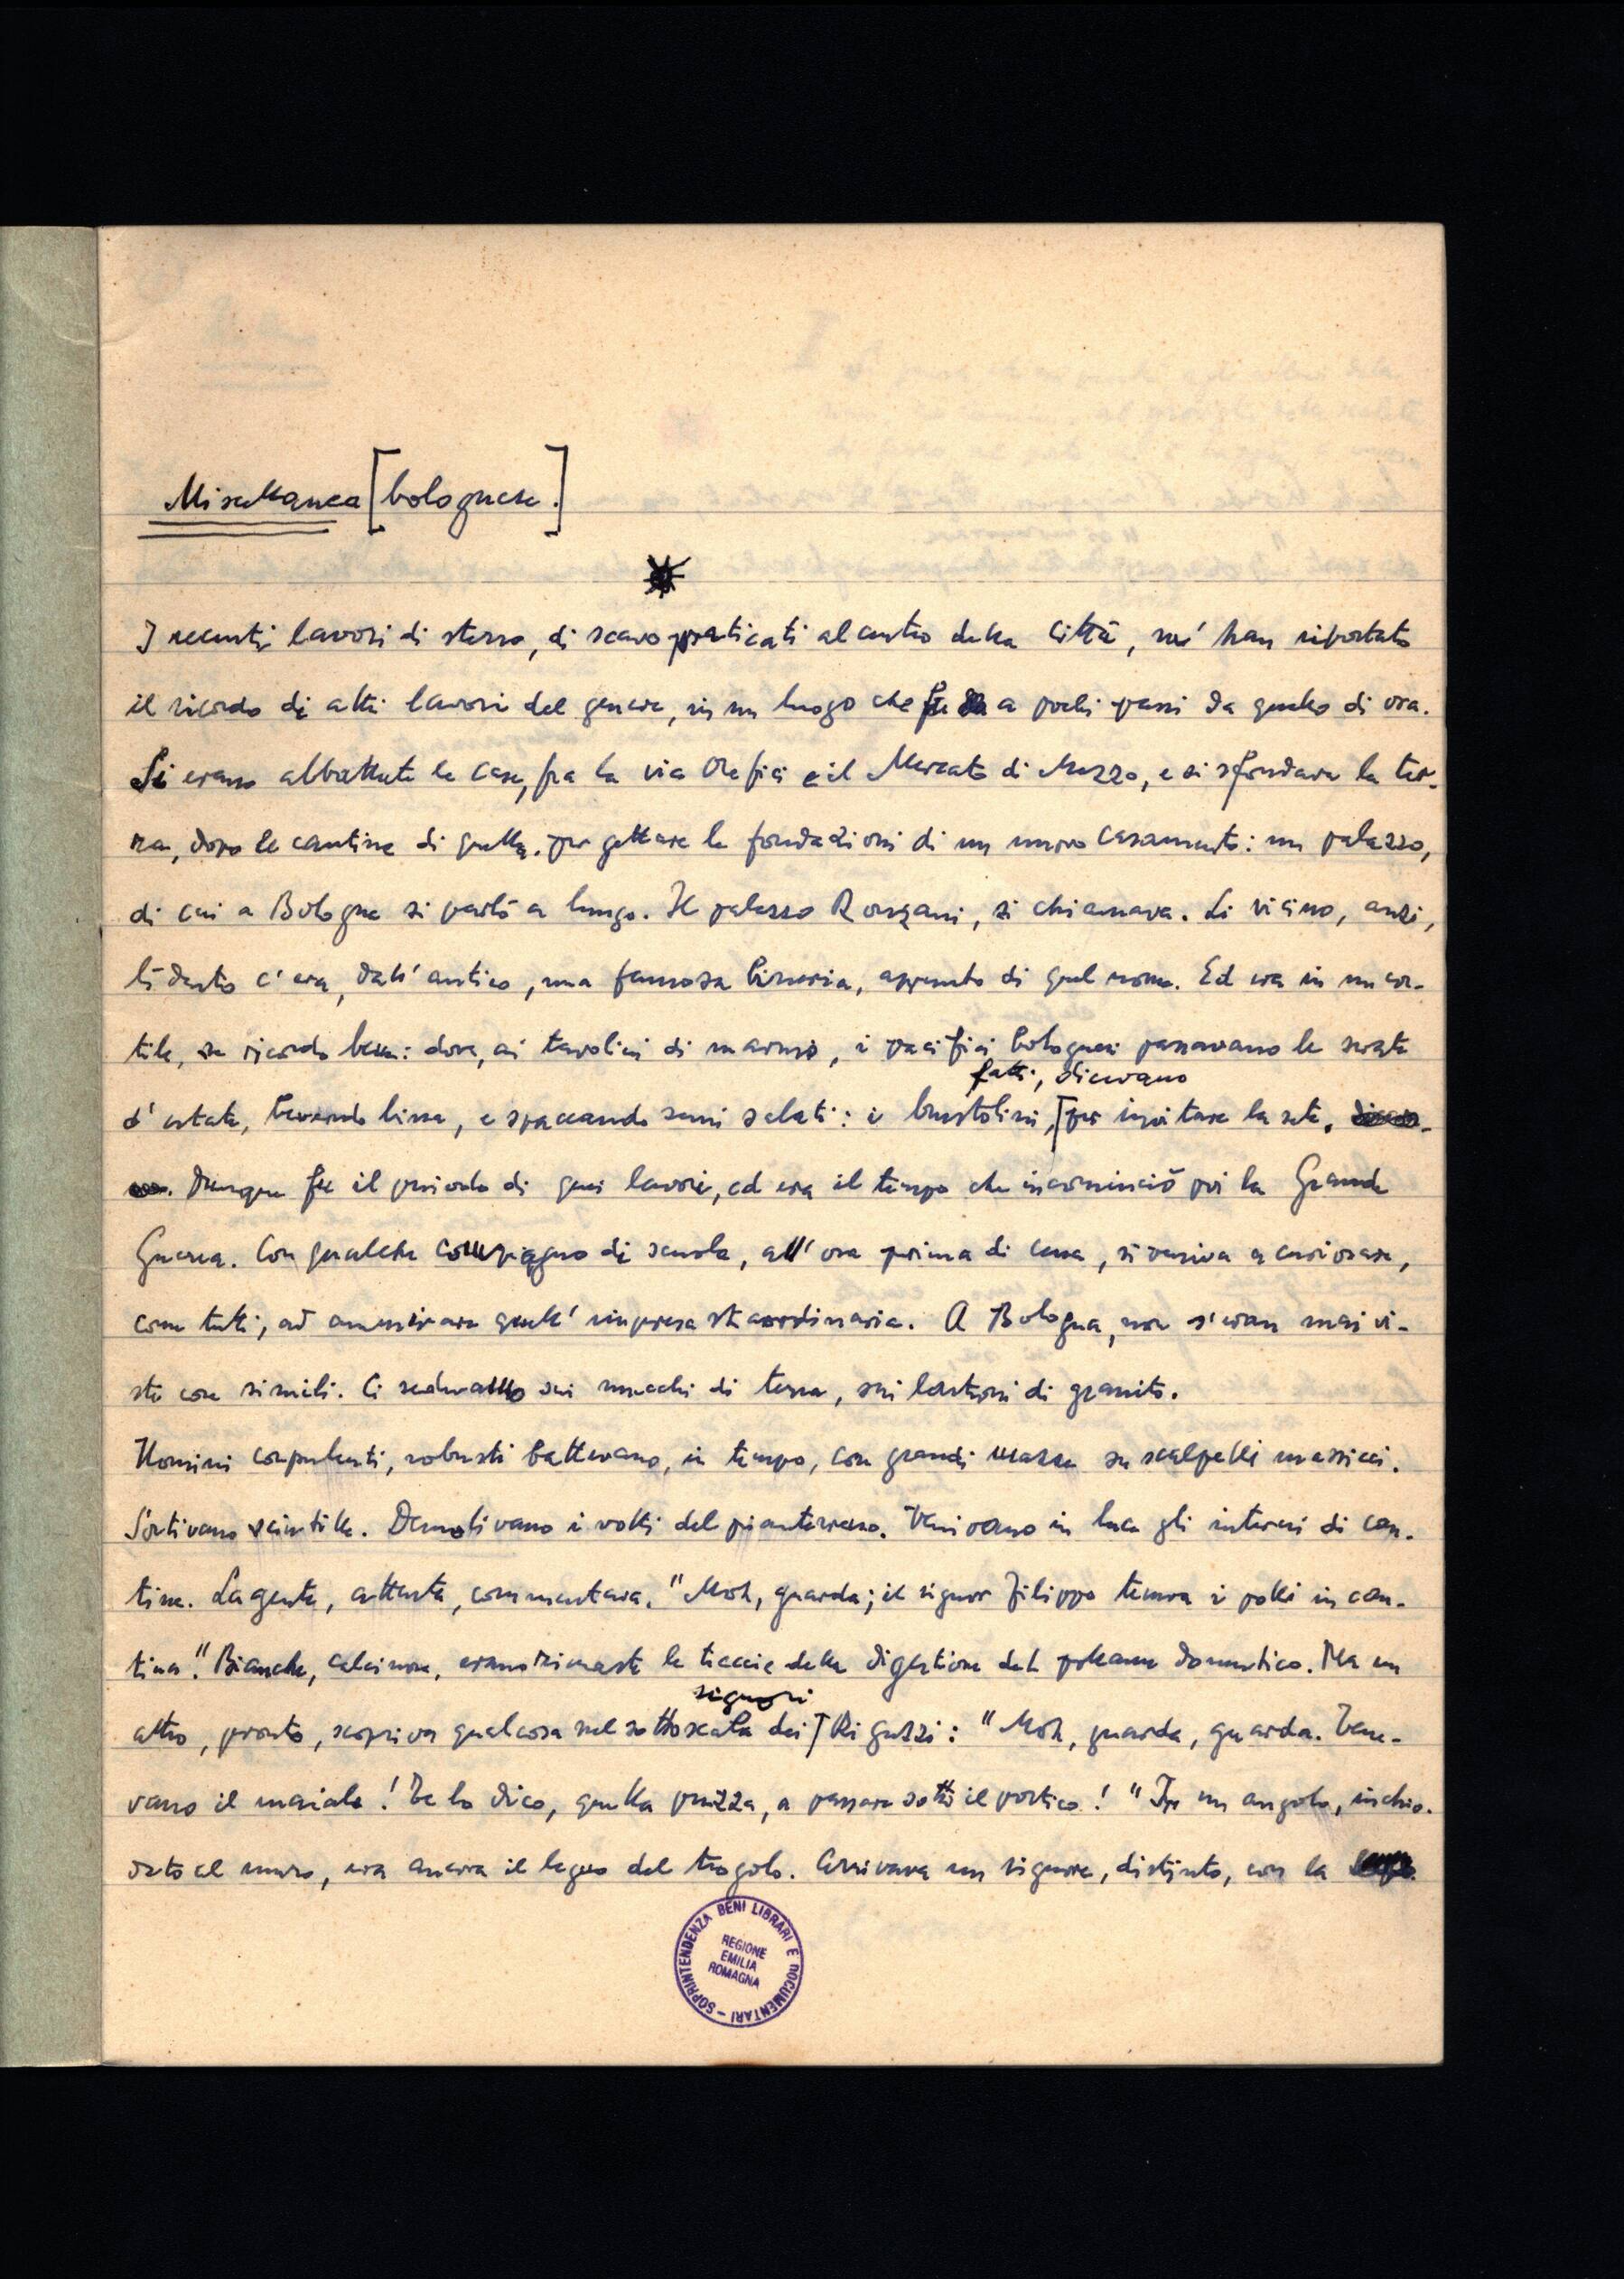 Miscellanea [bolognese.]
I recenti lavori di sterro, di scavo praticati al centro della città, m'han riportato
il ricordo di altri lavori del genere, in un luogo che fu a pochi passi da quello di ora.
Si erano abbattute le case, fra la via Orefici e il Mercato di Mezzo, e si sfondava la ter-
ra, dopo le cantine di quelle, per gettare le fondazioni di un nuovo casamento: un palazzo,
di cui a Bologna si parlò a lungo. Il palazzo Ronzani, si chiamava. Lì vicino, anzi,
lì dentro c'era, dall'antico, una famosa birreria, appunto di quel nome. Ed era in un cor-
tile, se ricordo bene: dove, ai tavolini di marmo, i pacifici bolognesi passavano le serate
fatti, dicevano
d'estate, bevendo birra, e spaccando semi salati: i brustolini, [per invitare la sete.
Dunque fu il periodo di quei lavori, ed era il tempo che incominciò poi la Grande
Guerra. Con qualche compagno di scuola, all'ora prima di cena, si veniva a curiosare,
come tutti, ad ammirare quell'impresa straordinaria. A Bologna, non s'eran mai vi-
ste cose simili. Ci sedevamo sui mucchi di terra, sui lastroni di granito.
Uomini corpulenti, robusti battevano, in tempo, con grandi mazze su scalpelli massicci.
Sortivano scintille. Demolivano i volti del pianterreno. Venivano in luce gli interni di can-
tine. La gente, attenta, commentava. "Moh, guarda; il signor Filippo teneva i polli in can-
tina." Bianche, calcinose, erano rimaste le traccie della digestione del pollame domestico. Ma un
signori
altro, pronto, scopriva qualcosa nel sottoscala dei [Riguzzi: "Moh, guarda, guarda. Tene-
vano il maiale! Te lo dico, quella puzza, a passare sotto il portico!" In un angolo, inchio-
dato al muro, era ancora il legno del trogolo. Arrivava un signore, distinto, con la
SOPRINTENDENZA BENI LIBRARI E DOCUMENTARI -
REGIONE
EMILIA
ROMAGNA